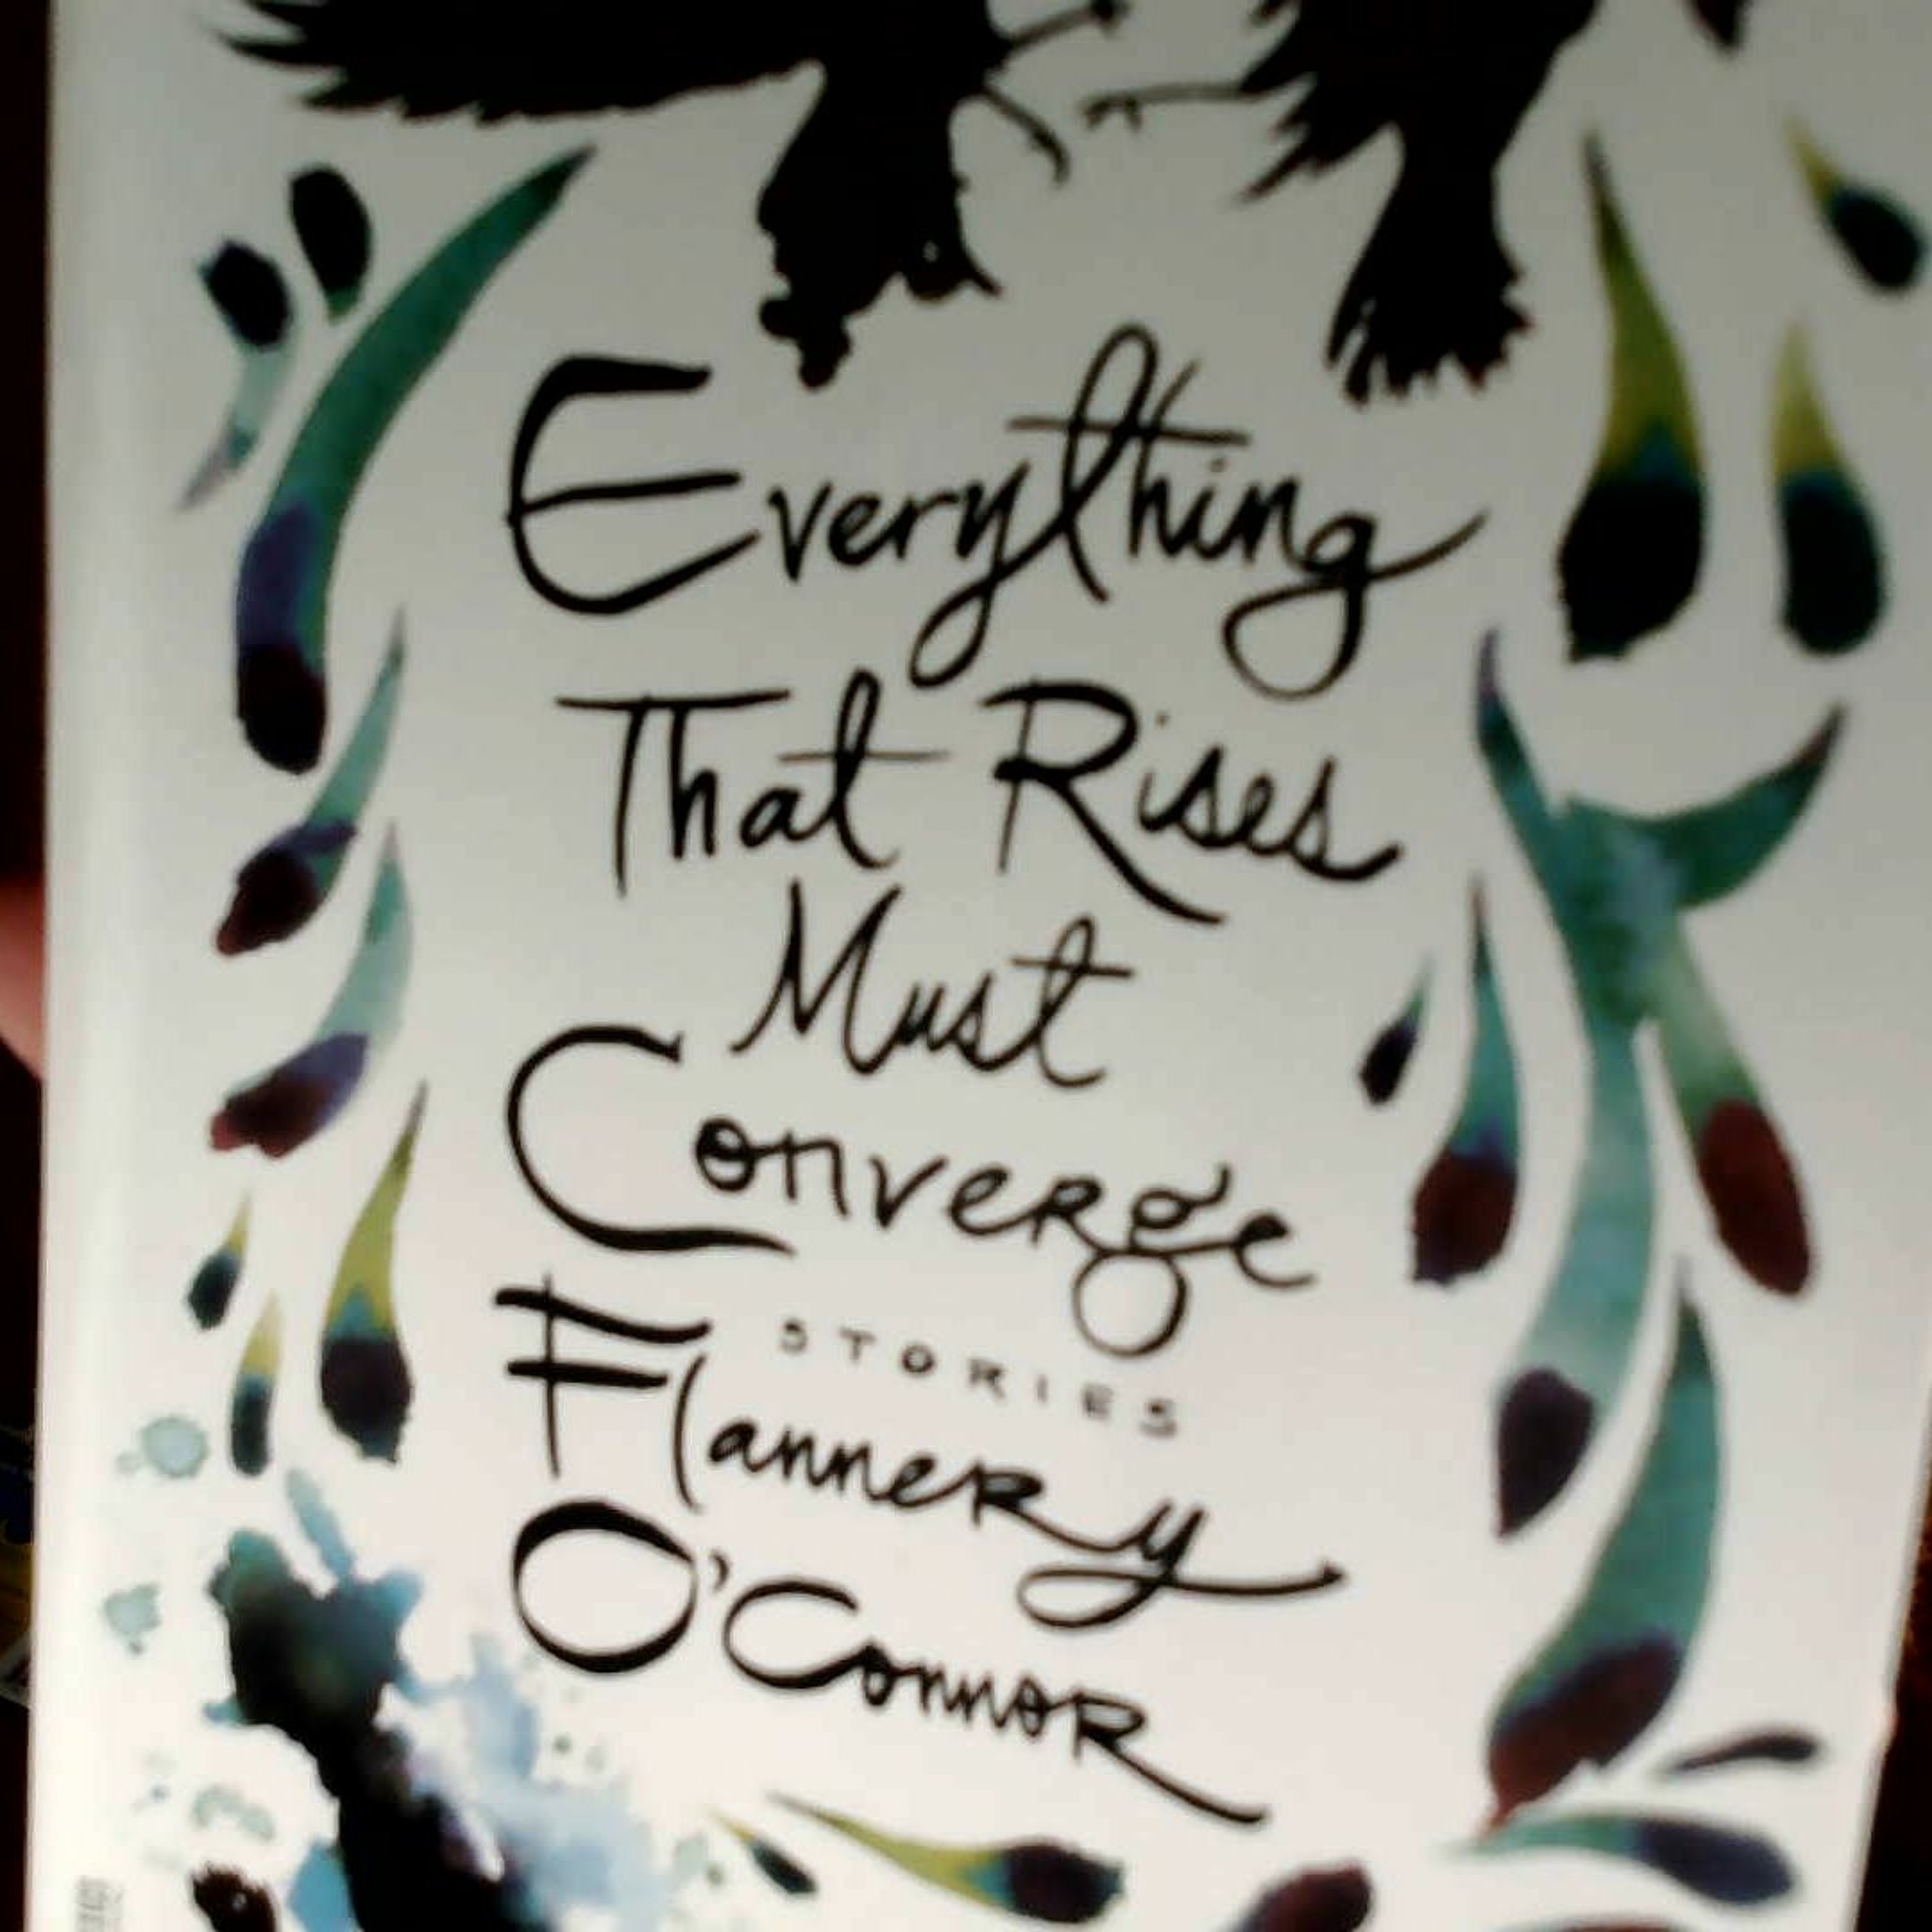 Everything
That Rises
Must
Converge
STORIES
Flannery
O'Connor